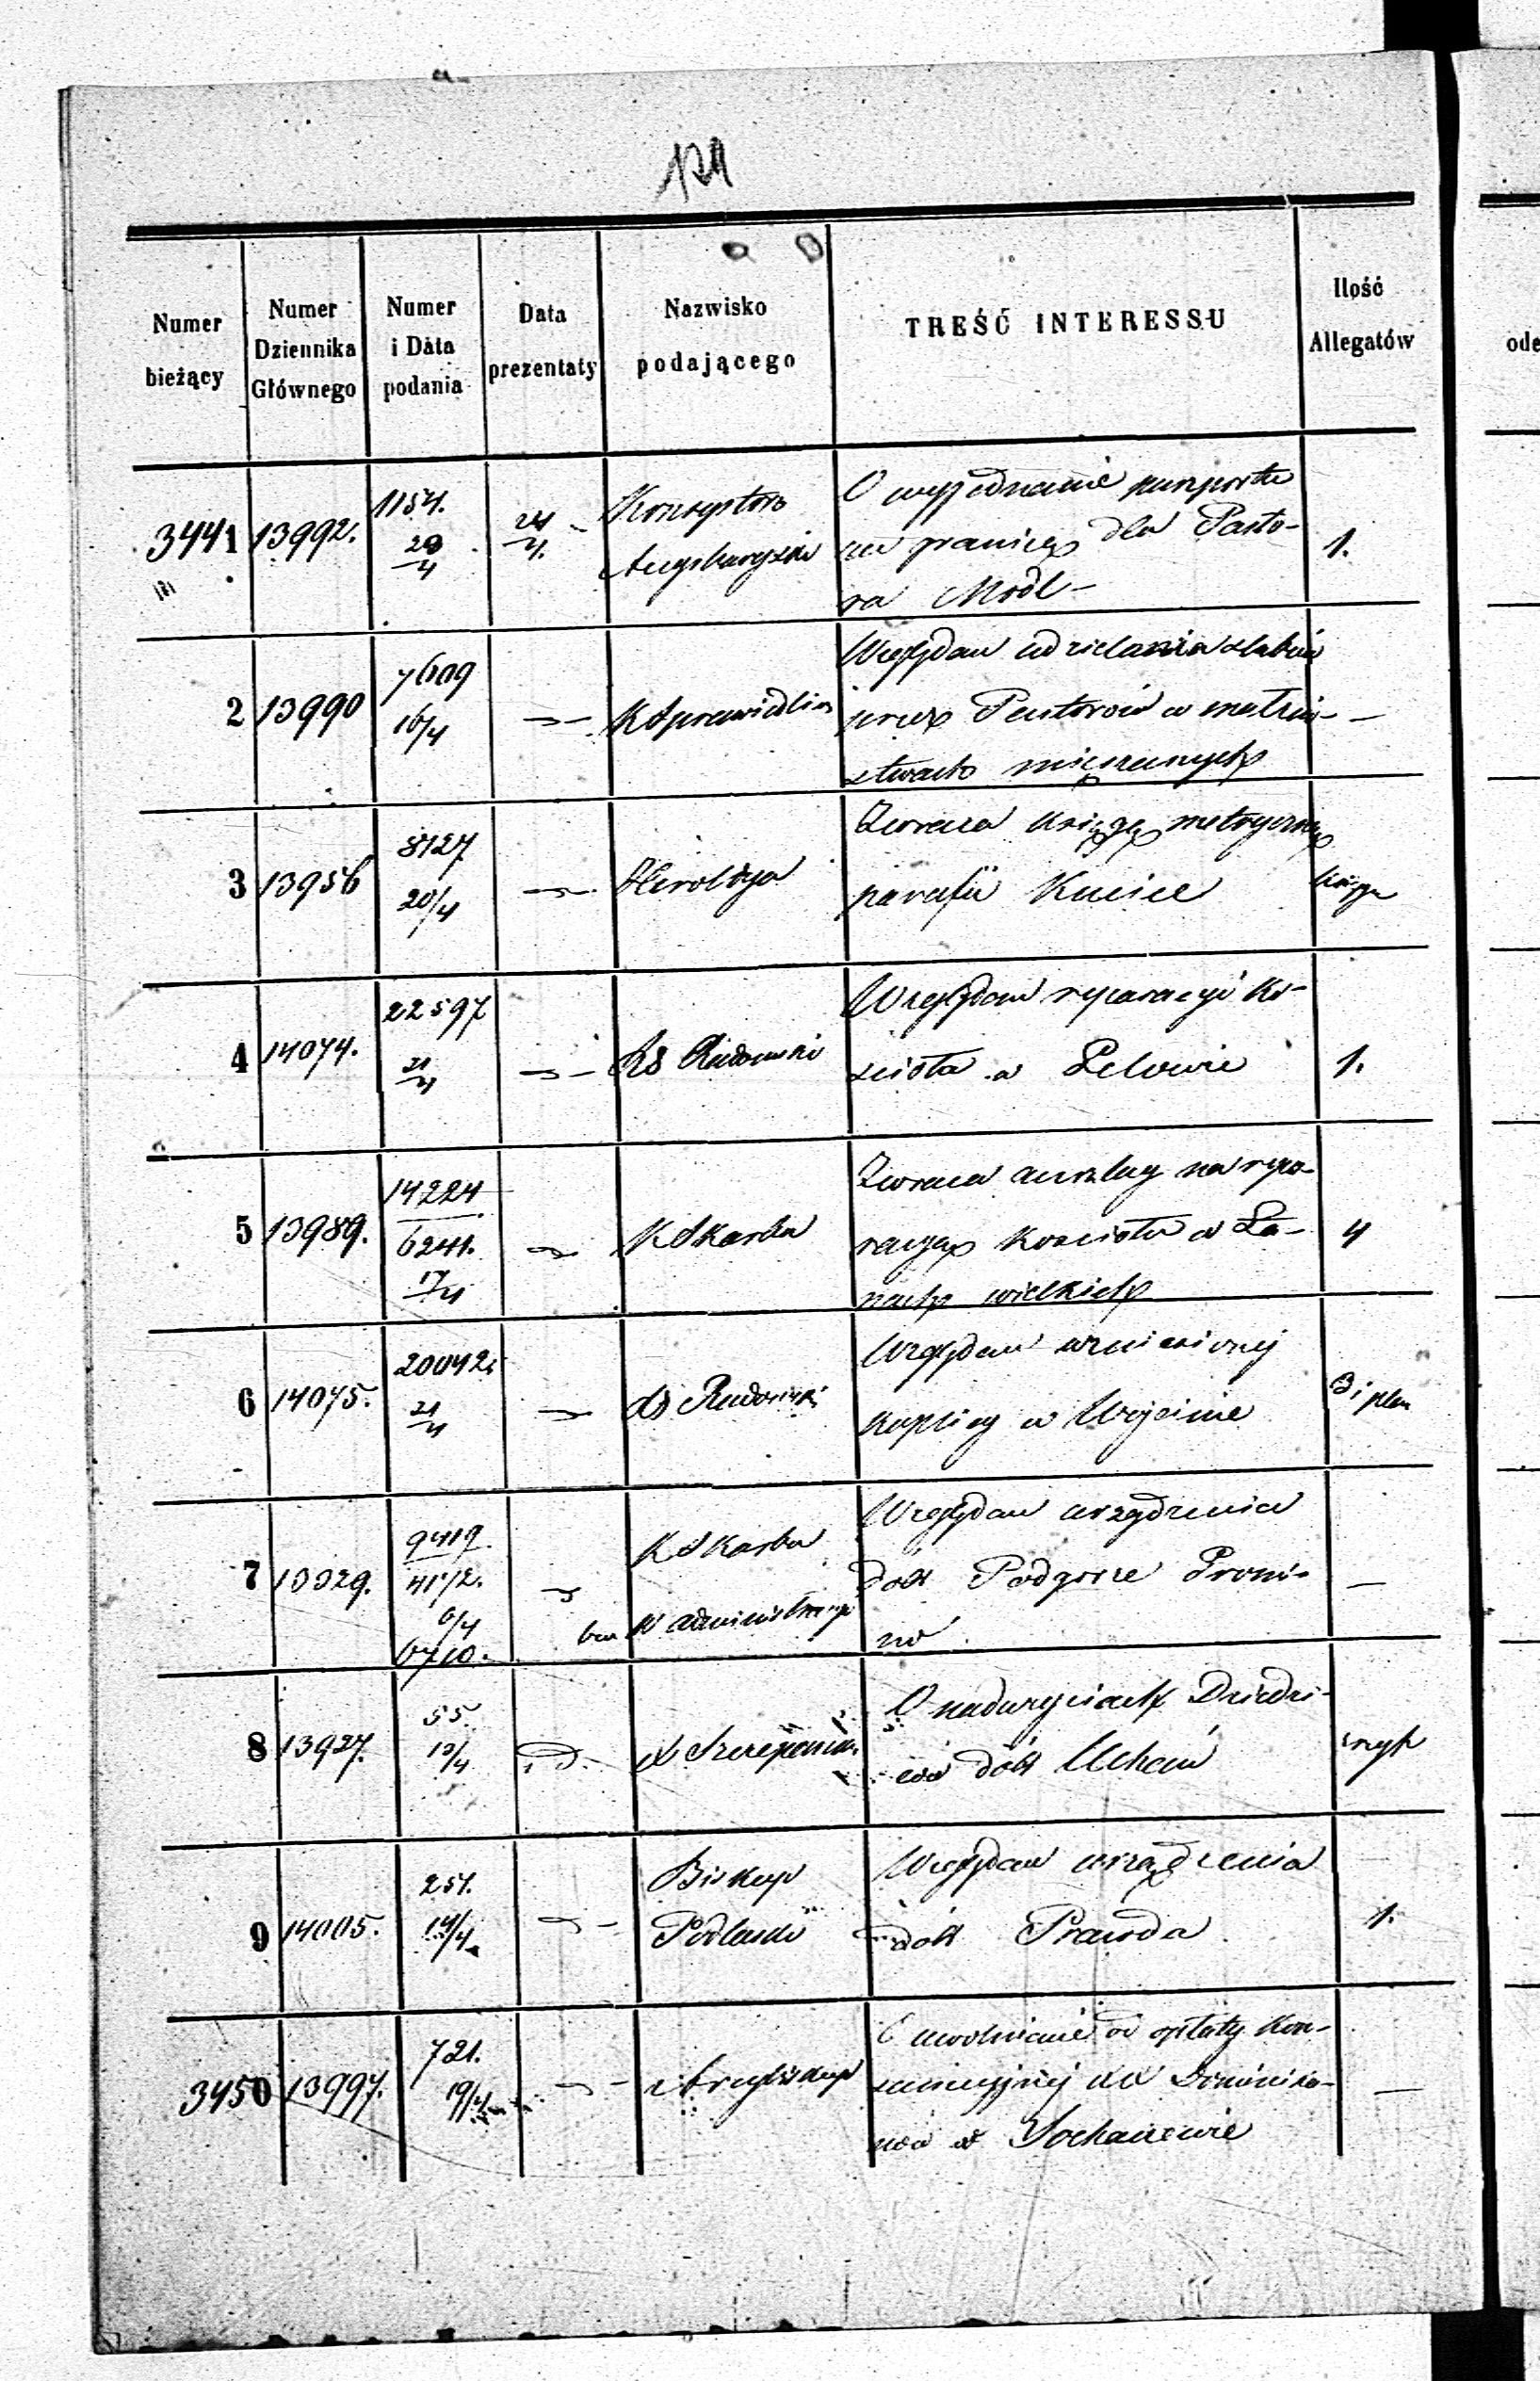 Numer bieżący
Numer Dziennika Głównego
Numer i Data podania
Data prezentaty
Nazwisko podającego
TREŚĆ INTERESSU
Ilość Allegatów
ode
3441
13992.
1154.
20/4
24/4.
Konsystorz
Augsburgski
O wyjednanie paszportu
za granicę dla Pasto-
ra Modl
1.
2
13990
7609
16/4
K Sprawiedliw
Względem udzielania ślubów
przez Pastorów w małżeń-
stwach mięszanych
3
13956
8127
20/4
Heroldya
Zwraca księgę metryczną
parafii Kucice
księga
4
14074.
22597
21/4
RG Radomski
Względem reparacyi Ko-
ścioła w
1.
5
13989.
14224
6241.
17/4
K Skarbu
Zwraca anszlag na repa-
racyę kościoła w Ła-
nach wielkich
4
6
14075.
20042.
21/4
RG Radomski
Względem wzniesionej
kaplicy w Wójcinie
3 i plan
7
13929.
9419
41172.
6/4
6710.
K Skarbu
W administracyi
Względem urządzenia
dóbr Podgorze
8
13927.
55
13/4
X Szczepański
O nadużyciach Dziedzi-
ców dóbr Uchań
9
14005.
251.
14/4
Biskup
Podlaski
Względem urządzenia
dóbr Prawda
1.
3450
13997.
721.
19/4
Arcybiskup
O uwolnienie od opłaty kon-
sumcyjnej XX Dominika-
nów w Sochaczewie